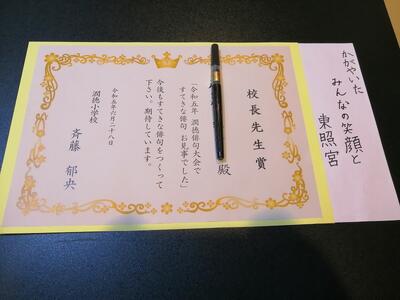 かがやいた
みんなの笑顔と
東照宮
校長先生賞
殿
「令和五年 潤徳俳句大会で
すてきな俳句 お見事でした」
今後もすてきな俳句をつくって
下さい。期待しています。
令和五年六月二十八日
潤徳小学校
斉藤 郁央